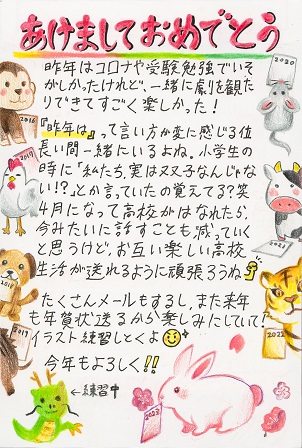 あけましておめでとう
昨年はコロナや受験勉強でいそ
がしかったけれど、一緒に劇を観た
りできてすごく楽しかった！
『昨年は』って言い方が変に感じる位
長い間一緒にいるよね。小学生の
時に「私たち、実は双子なんじゃな
い!?」とか言っていたの覚えてる？笑
4月になって高校がはなれたら、
今みたいに話すことも減っていく
と思うけど、お互い楽しい高校
生活が送れるように頑張ろうね
たくさんメールもするし、また来年
も年賀状送るから楽しみにしていて！
イラスト練習しとくよ
今年もよろしく!!
←練習中
2016
2017
2018
2019
2020
2021
2022
2023